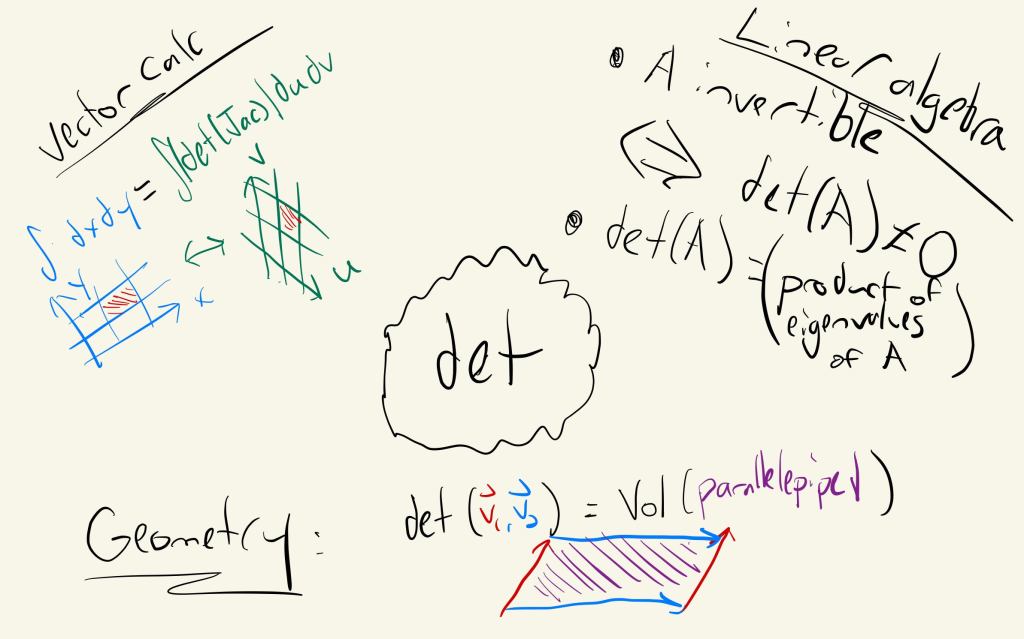 Vector Calc
∫ dxdy = ∫|det(Jac)|dudv
y
x
↔
v
u
Linear algebra
• A invertible
⇔
det(A) ≠ 0
• det(A) = (product of
eigenvalues
of A)
det
Geometry:
det (v⃗₁, v⃗₂) = Vol (parallelepiped)